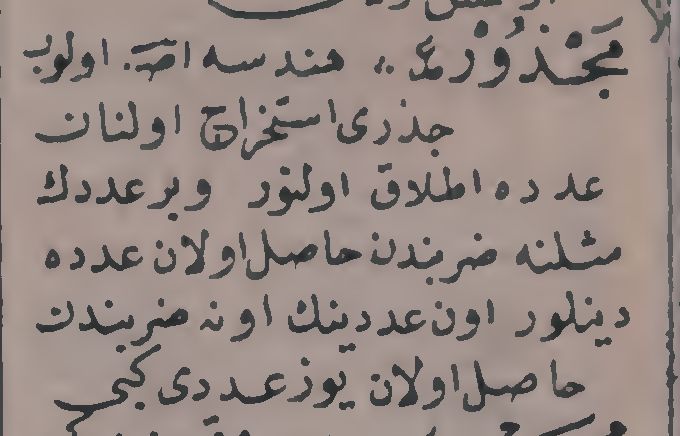 مَجْذُوْر عد ،، هندسه اصـ. اولوب
جذرى استخراج اولنان
عدده اطلاق اولنور وبر عددك
مثلنه ضربندن حاصل اولان عدده
دينلور اون عددينك اونه ضربندن
حاصل اولان يوز عددى كبى